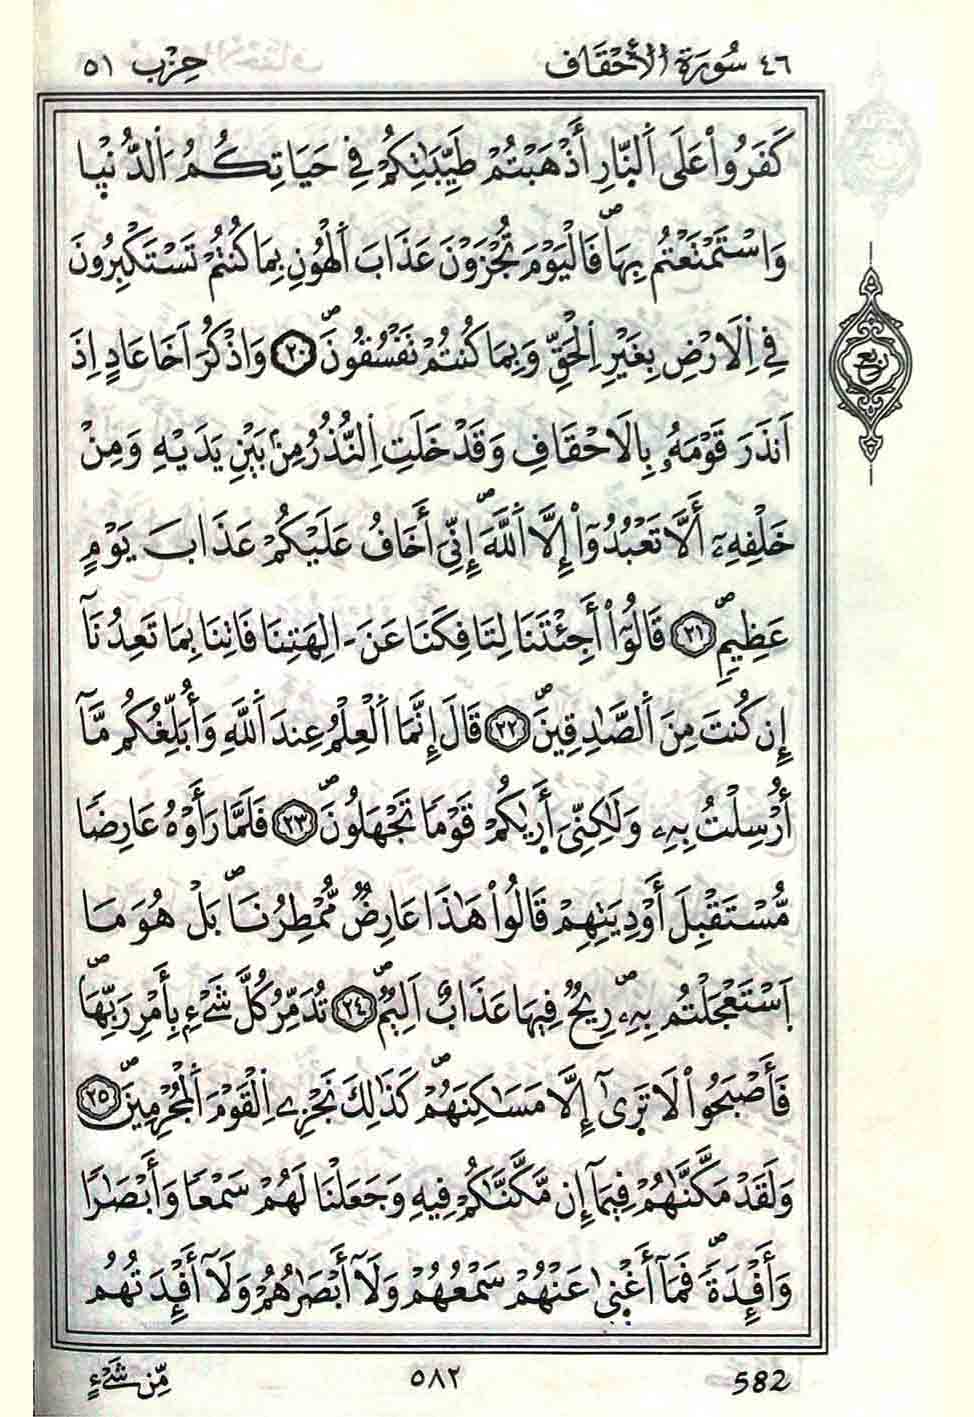 ٤٦ سُورَةُ الْأَحْقَافِ حِزْب ٥١
كَفَرُواْ عَلَى اَلنّ۪ارِ أَذْهَبْتُمْ طَيِّبَٰتِكُمْ فِے حَيَاتِكُمُ اَلدُّنْي۪ا
وَاسْتَمْتَعْتُم بِهَاۖ فَالْيَوْمَ تُجْزَوْنَ عَذَابَ اَلْهُونِ بِمَا كُنتُمْ تَسْتَكْبِرُونَ
فِے اِلَارْضِ بِغَيْرِ اِلْحَقِّ وَبِمَا كُنتُمْ تَفْسُقُونَۖ ۝٢٠ وَاذْكُرَ اَخَا عَادٍ اِذَ
اَنذَرَ قَوْمَهُۥ بِالَاحْقَافِ وَقَدْ خَلَتِ اِلنُّذُرُ مِنۢ بَيْنِ يَدَيْهِ وَمِنْ
خَلْفِهِۦٓ أَلَّا تَعْبُدُوٓاْ إِلَّا اَللَّهَۖ إِنِّيَ أَخَافُ عَلَيْكُمْ عَذَابَ يَوْمٍ
عَظِيمٍۖ ۝٢١ قَالُوٓاْ أَجِئْتَنَا لِتَافِكَنَا عَنَ اٰلِهَتِنَا فَاتِنَا بِمَا تَعِدُنَآ
إِن كُنتَ مِنَ اَلصَّٰدِقِينَۖ ۝٢٢ قَالَ إِنَّمَا اَلْعِلْمُ عِندَ اَللَّهِ وَأُبَلِّغُكُم مَّآ
أُرْسِلْتُ بِهِۦ وَلَٰكِنِّيَ أَر۪يٰكُمْ قَوْماً تَجْهَلُونَۖ ۝٢٣ فَلَمَّا رَأَوْهُ عَارِضاً
مُّسْتَقْبِلَ أَوْدِيَتِهِمْ قَالُواْ هَٰذَا عَارِضٞ مُّمْطِرُنَاۖ بَلْ هُوَ مَا
اَسْتَعْجَلْتُم بِهِۦۖ رِيحٞ فِيهَا عَذَابٌ اَلِيمٞۖ ۝٢٤ تُدَمِّرُ كُلَّ شَےْءِۢ بِأَمْرِ رَبِّهَاۖ
فَأَصْبَحُواْ لَا تَر۪ىٰٓ إِلَّا مَسَٰكِنَهُمْۖ كَذَٰلِكَ نَجْزِے اِلْقَوْمَ اَلْمُجْرِمِينَۖ ۝٢٥
وَلَقَدْ مَكَّنَّٰهُمْ فِيمَآ إِن مَّكَّنَّٰكُمْ فِيهِ وَجَعَلْنَا لَهُمْ سَمْعاً وَأَبْصَٰراً
وَأَفْـِٕدَةٗۖ فَمَآ أَغْن۪يٰ عَنْهُمْ سَمْعُهُمْ وَلَآ أَبْصَٰرُهُمْ وَلَآ أَفْـِٕدَتُهُم
رُبُع
582 ٥٨٢ مِّن شَےْءٍ